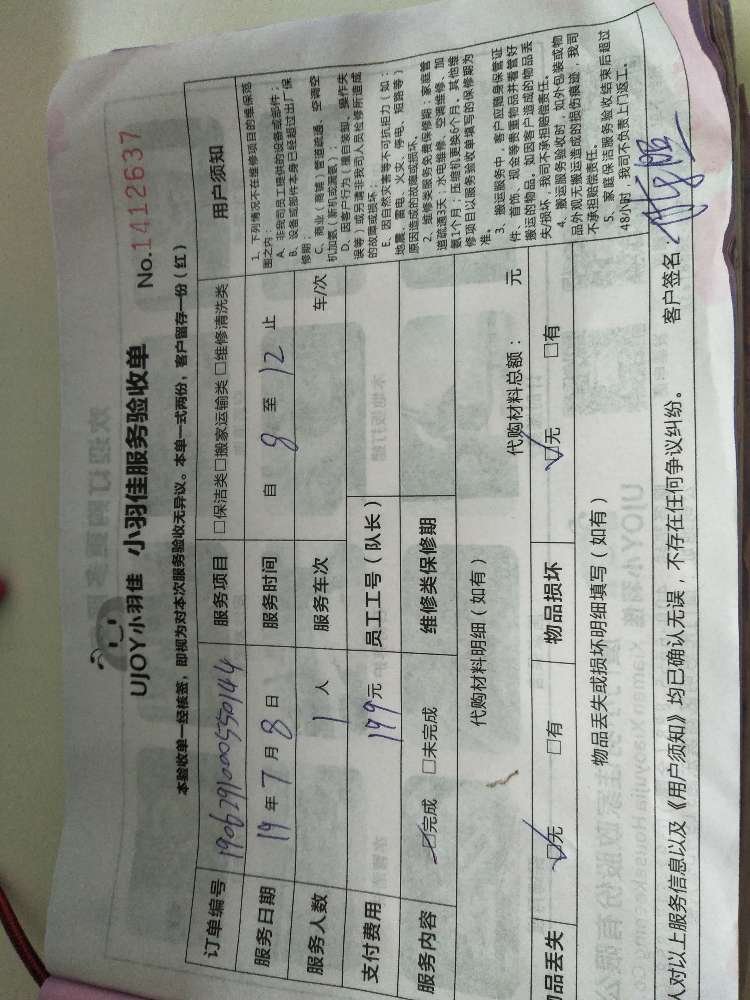 UJOY小羽佳 小羽佳服务验收单 No.1412637
本验收单一经核签，即视为对本次服务验收无异议。本单一式两份，客户留存一份（红）
订单编号 服务项目 □保洁类□搬家运输类 □维修清洗类
服务日期 19年7月8日 服务时间 自 8 至 12 止
服务人数 1 人 服务车次 车/次
支付费用 199元 员工工号（队长）
服务内容 ☑完成 □未完成 维修类保修期
代购材料明细（如有） 代购材料总额： 元
物品丢失 ☑无 □有 物品损坏 ☑无 □有
物品丢失或损坏明细填写（如有）
用户须知
1、下列情况不在维修项目的维保范
围之内：
A、非我司员工提供的设备或部件；
B、设备或部件本身已经超过出厂保
修期；
C、商业（商铺）管道疏通、空调空
机加氨（新机或漏氨）；
D、因客户行为（擅自装卸、操作失
误等）或另请非我司人员检修所造成
的故障或损坏；
E、因自然灾害等不可抗拒力（如：
地震、雷电、火灾、停电、短路等）
原因造成的故障或损坏。
2、维修类服务免费保修期：家庭管
道疏通3天，水电维修、空调维修、加
氨1个月；压缩机更换6个月，其他维
修项目以服务验收单填写的保修期为
准。
3、搬运服务中，客户应随身保管证
件、首饰、现金等贵重物品并看管好
搬运的物品。如因客户造成的物品丢
失/损坏，我司不承担赔偿责任。
4、搬运服务验收时，如外包装或物
品外观无搬运造成的损伤痕迹，我司
不承担赔偿责任。
5、家庭保洁服务验收结束后超过
48小时，我司不负责上门返工。
人对以上服务信息以及《用户须知》均已确认无误，不存在任何争议纠纷。 客户签名：